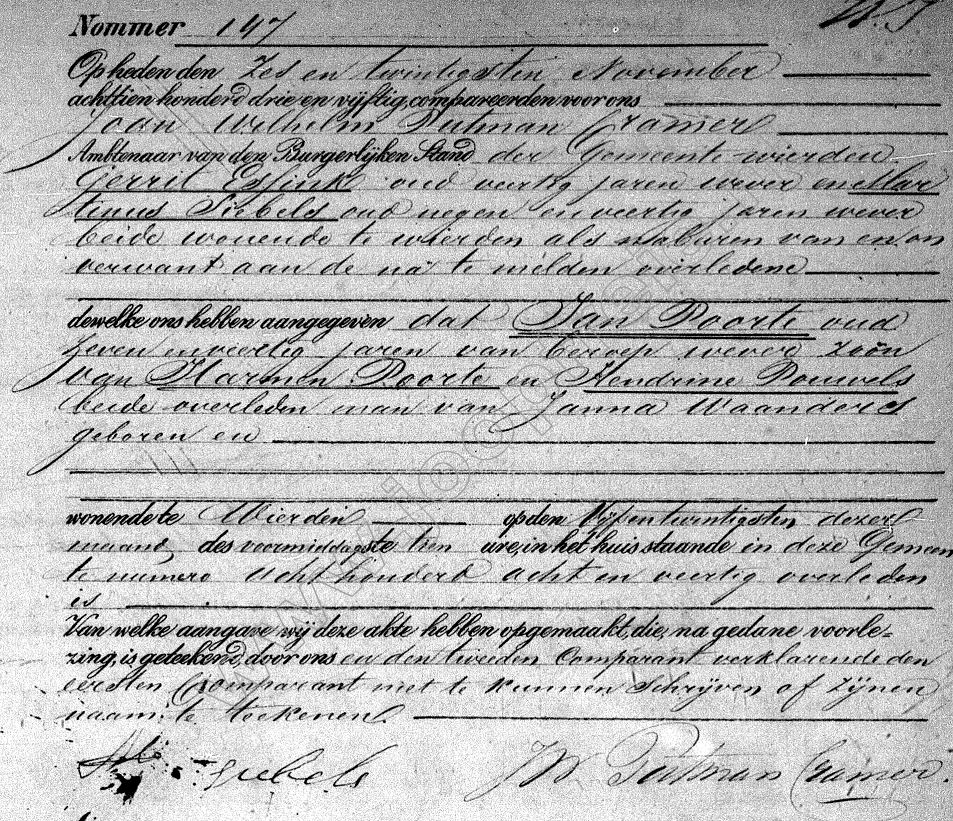 Nommer 147
Op heden den Zes en twintigsten November
achttien honderd drie en vijftig, compareerden voor ons
Joan Wilhelm Putman Cramer
Ambtenaar van den Burgerlijken Stand der Gemeente Wierden
Gerrit Essink oud veertig jaren wever en Mar
tinus Siebels oud negen en veertig jaren wever
beide wonende te Wierden als naburen van en on
verwant aan de na te melden overledene
dewelke ons hebben aangegeven dat Jan Poorte oud
zeven en veertig jaren van beroep wever zoon
van Harmen Poorte en Hendrine Pouwels
beide overleden man van Janna Waanders
geboren en
wonende te Wierden op den Vijf en twintigsten dezer
maand, des voormiddags te tien ure, in het huis staande in deze Gemeen
te numero acht honderd acht en veertig overleden
is
Van welke aangave wij deze akte hebben opgemaakt, die, na gedane voorle-
zing, is geteekend, door ons en den tweeden Comparant verklarende den
eersten Comparant niet te kunnen schrijven of zijnen
naam te teekenen
Siebels JW Putman Cramer.